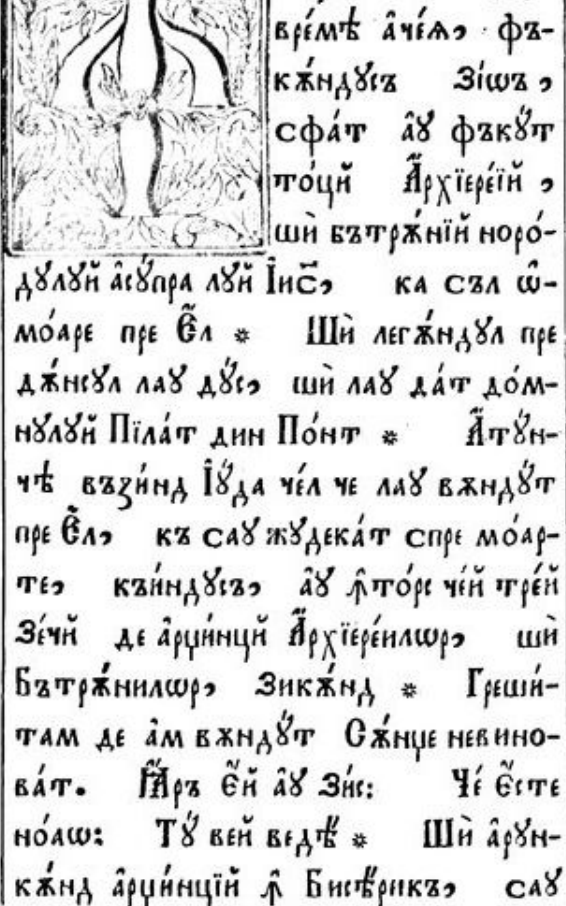 вре́мѣ ачѣ́ѧ, фъ-
кѫ́ндꙋсъ Зі́ѡъ,
сфа́т аꙋ фъкꙋ́т
то́ци Архїере́їй,
шѝ бътрѫ́нїй норо́-
дꙋлꙋй асꙋ́пра лꙋй І҆ис҃, ка съл ѡ-
мо́аре пре Є҆л * Шѝ легѫ́ндꙋл пре
дѫ́нсꙋл лаꙋ дꙋ́с, шѝ лаꙋ да́т до́м-
нꙋлꙋй Пїла́т дин По́нт * Атꙋ́н-
чѣ възи́нд І҆ꙋ́да че́л че лаꙋ вѫндꙋ́т
пре Є҆л, къ саꙋ жꙋдека́т спре мо́ар-
те, къи́ндꙋсъ, аꙋ ꙟто́рс че́й тре́й
Зе́чй де арџи́нцй Архїере́илѡр, шѝ
Бътрѫ́нилѡр, Зикѫ́нд * Греши́-
там де ам вѫндꙋ́т Сѫ́нџе невино-
ва́т. Іа҆ръ Є҆й аꙋ Зи́с: Че́ Є҆сте
но́аѡ: Тꙋ́ вей ведѣ́ * Шѝ арꙋн-
кѫ́нд арџи́нцїй ꙟ Бисѣ́рикъ, саꙋ